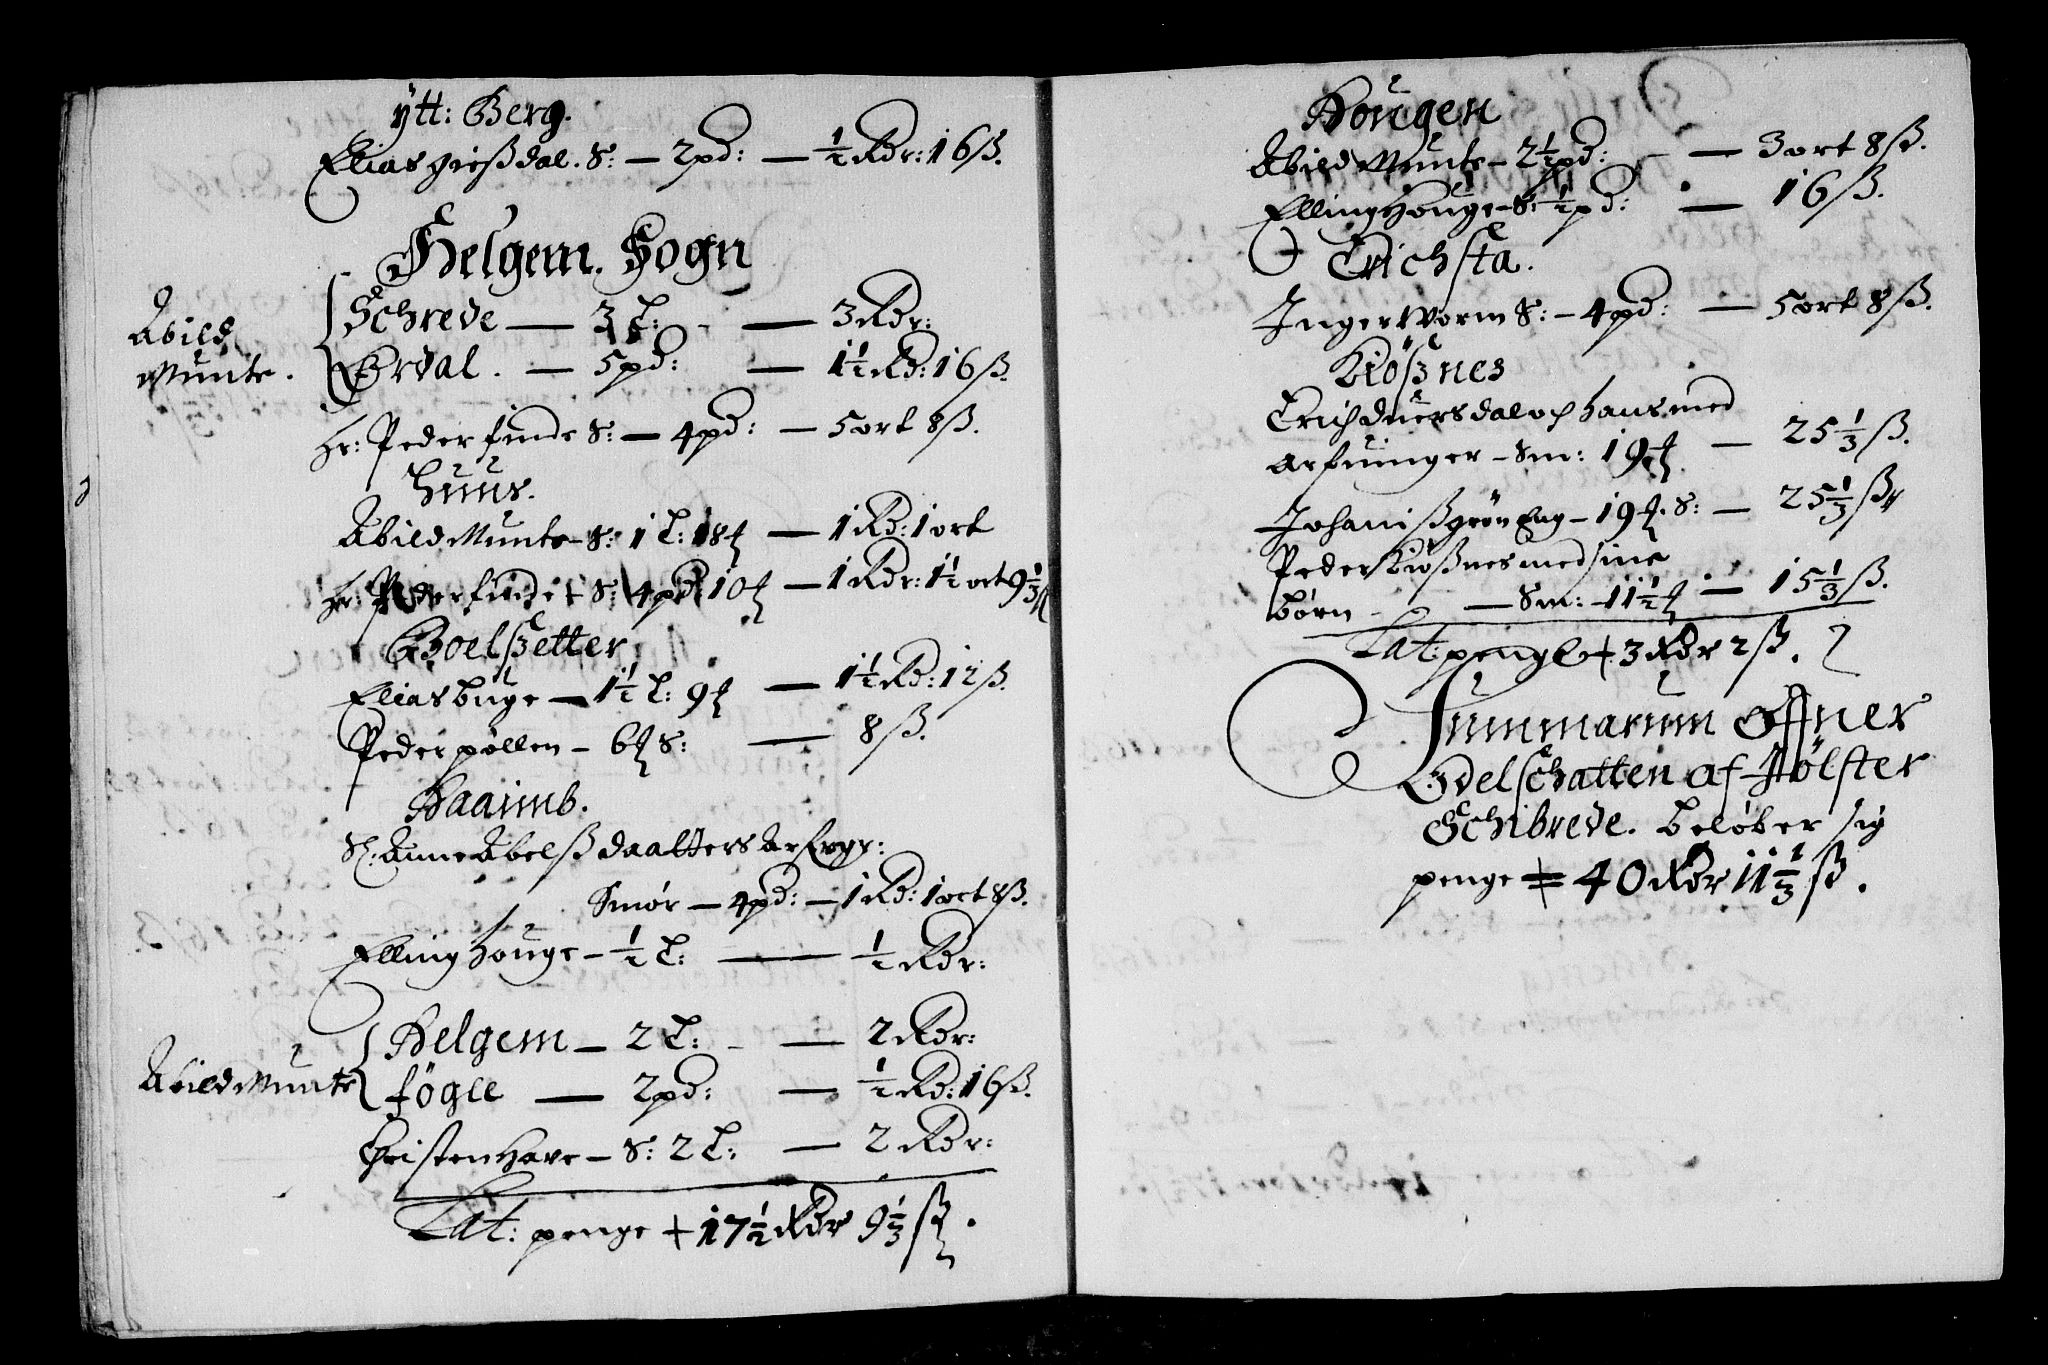 ÿtt: Berg.
Elias giesßdal. S: — 2pd: — ½ Rdr: 16ß.
Helgem. Sogn
Abild Munte. Schrede — 3 L: — 3Rdr:
Ørdal. — 5pd: — 1½ Rd: 16ß.
Hr: Peder finde S: — 4pd: — 5ort 8ß.
Huus.
Abild Munte – S: 1 L: 18 — 1Rd: 1ort
Hr: Peder finde + S: 4pd 10 — 1Rdr: 1½ oct 9⅓ß
Boelsetter
Elias buge — 1½ L: 9 — 1½ Rd: 12ß.
Peder pøllen – 6 S: — 8ß.
Haaimb.
Sl: Anne Abelsß daatters Arfvgr:
Smør — 4pd: — 1Rd: 1oct 8ß.
Elling houge – ½ L: — ½ Rdr:
Abild Munte Helgem — 2 L: — 2 Rdr:
fögle — 2pd: — ½ Rd: 16ß.
Christen Have — S: 2 L: — 2 Rdr:
Lat: penge + 17½ Rdr 9⅓ß.
Hougen
Abild Munte – 2½pd: — 3ort 8ß.
Elling Houge – S: ½pd: — 16ß.
Erichsta.
Inger Worm S: – 4pd: — 5ort 8ß.
Kiösnes
Erich duersdal och hans med
arfuinger – Sm: 19 — 25⅓ß.
Johanisß grön Eng – 19. S: — 25⅓ß
Peder Kiösnes med sine
börn — Sm: 11½ — 15⅓ß.
Lat: penge + 3 Rdr 2ß.
Summarum Offner
Odelschatten af Jölster
Schibrede. beløber sig
penge = 40 Rdr 11⅓ß.